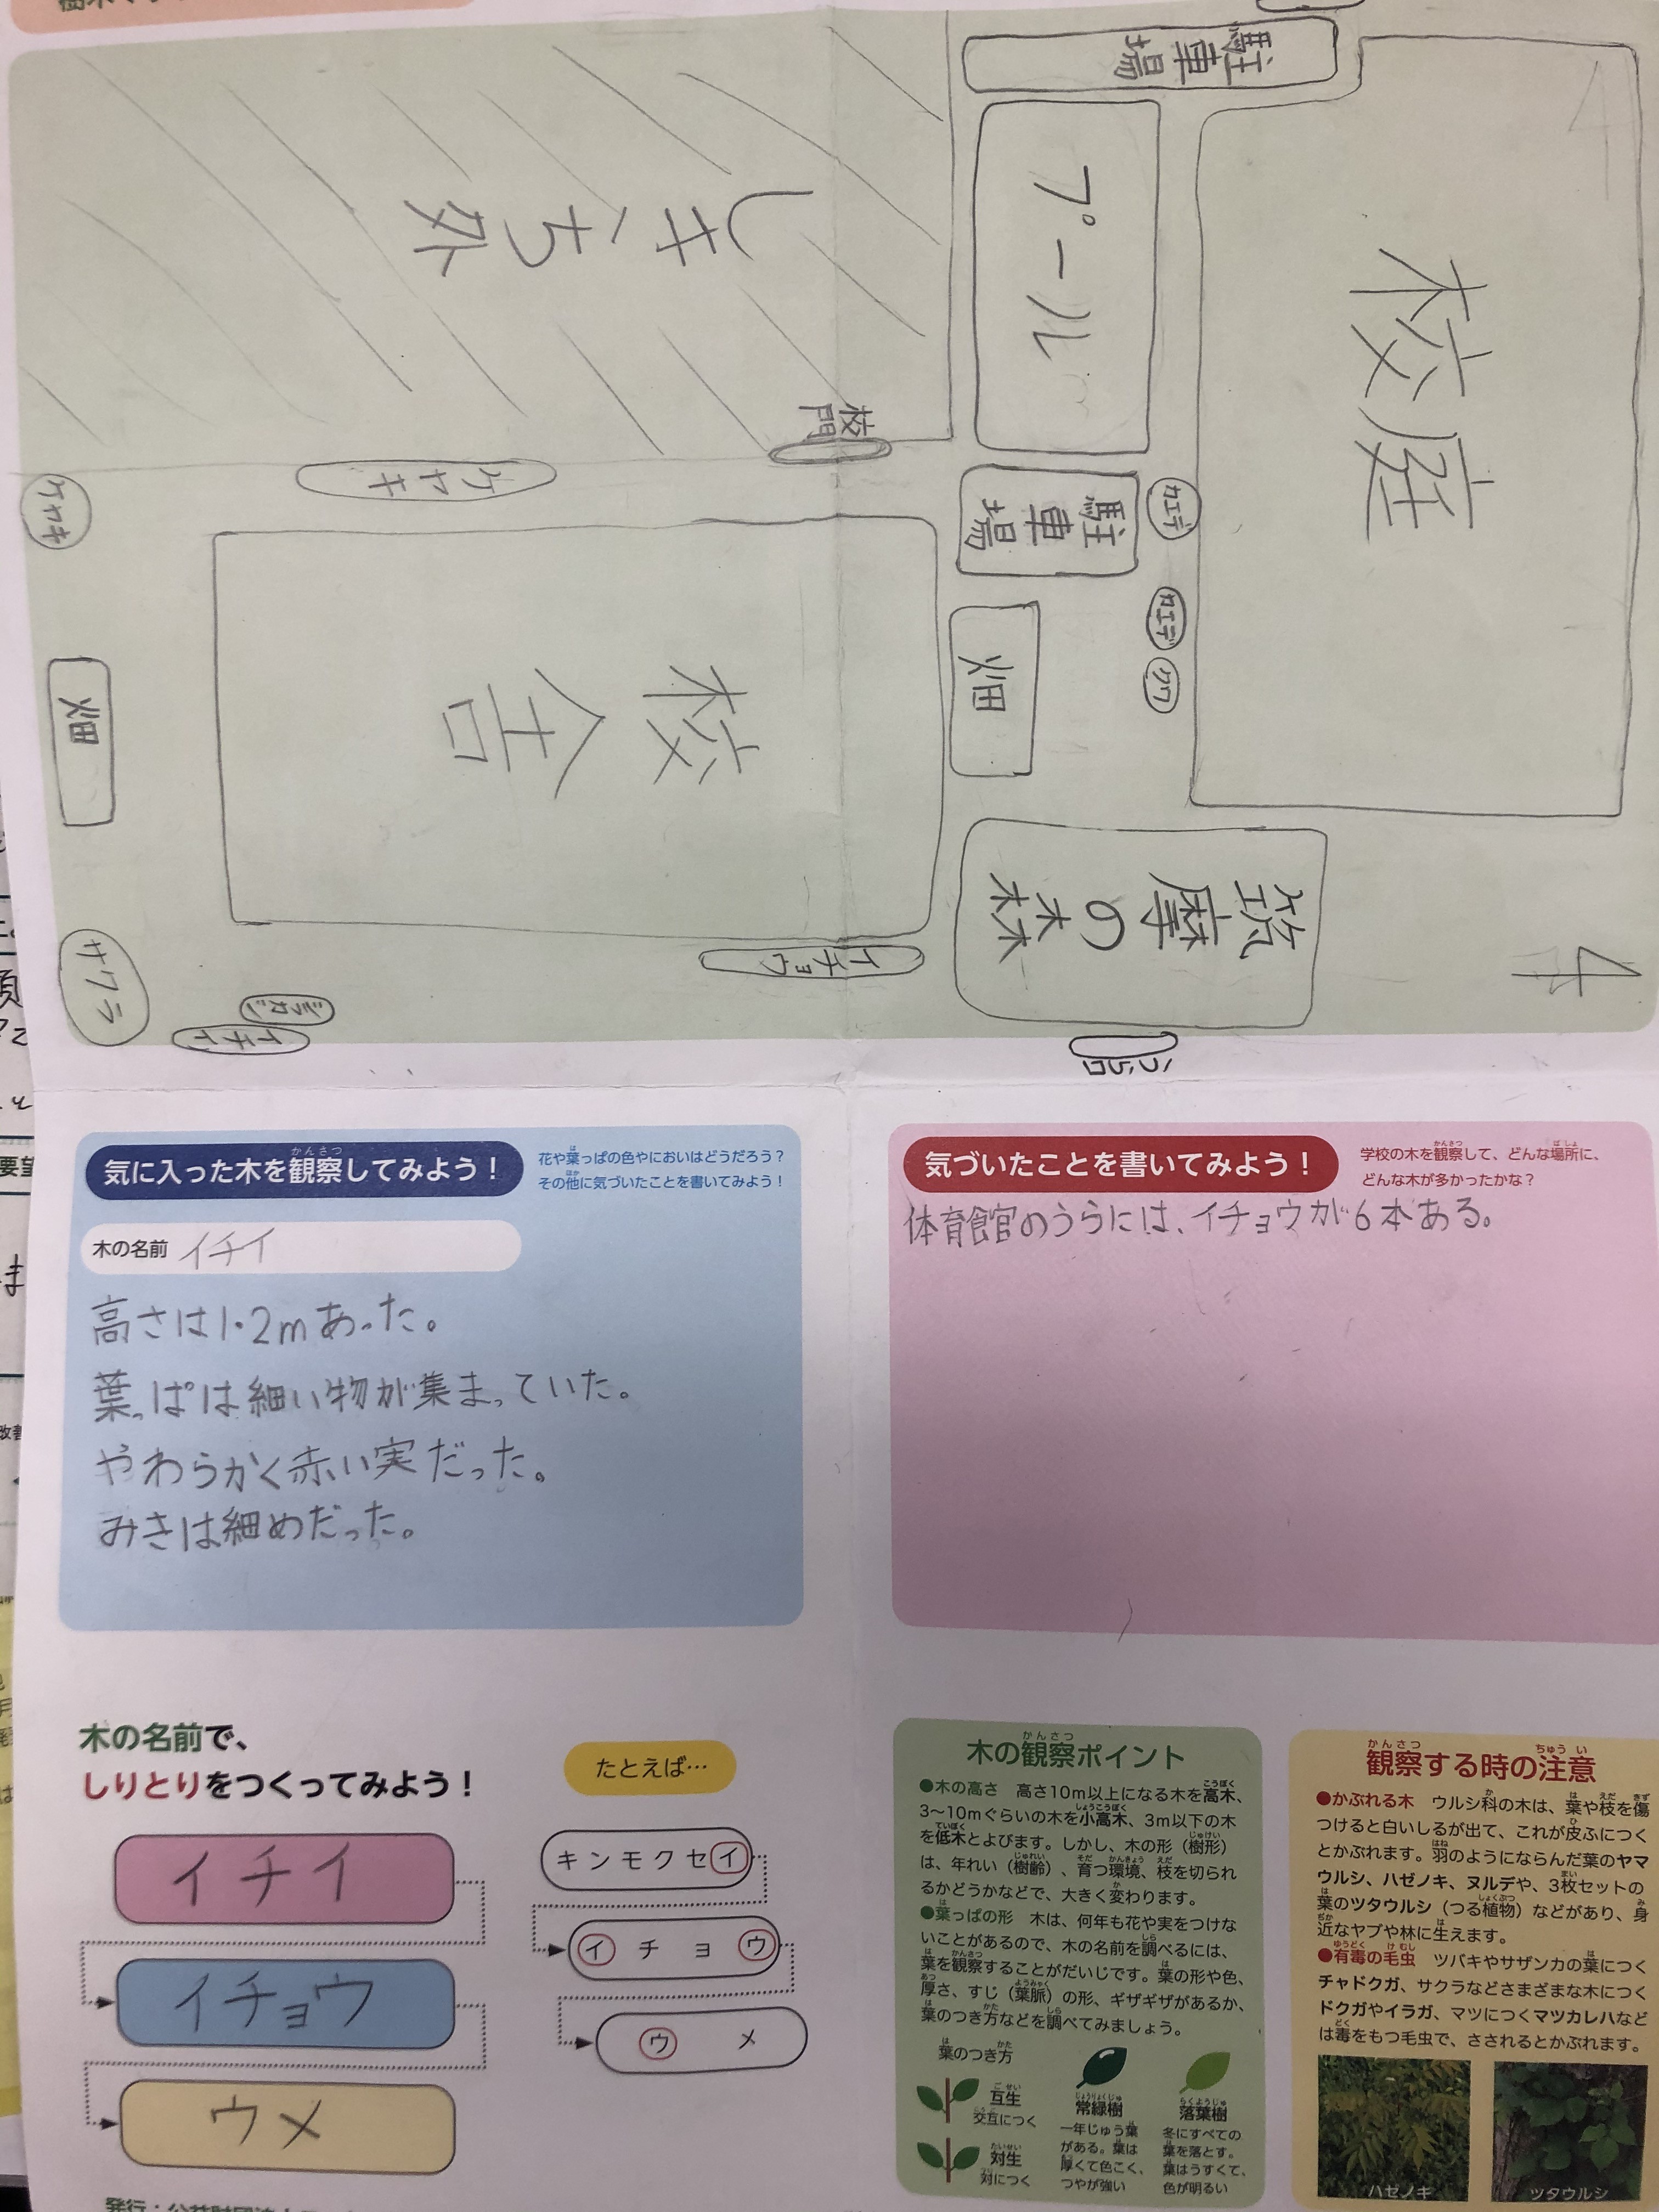 駐車場
しきち外
プール
校庭
校門
ケヤキ
ケヤキ
駐車場
カエデ
カエデ
クワ
畑
畑
校舎
筑摩の森
イチョウ
サワラ
シラカバ
イチイ
4
気に入った木を観察してみよう！
花や葉っぱの色やにおいはどうだろう？
その他に気づいたことを書いてみよう！
木の名前 イチイ
高さは1.2mあった。
葉っぱは細い物が集まっていた。
やわらかく赤い実だった。
みきは細めだった。
気づいたことを書いてみよう！
学校の木を観察して、どんな場所に、
どんな木が多かったかな？
体育館のうらには、イチョウが6本ある。
木の名前で、
しりとりをつくってみよう！
イチイ
イチョウ
ウメ
たとえば…
キンモクセイ
イチョウ
ウメ
木の観察ポイント
●木の高さ 高さ10m以上になる木を高木、
3〜10mぐらいの木を小高木、3m以下の木
を低木とよびます。しかし、木の形（樹形）
は、年れい（樹齢）、育つ環境、枝を切られ
るかどうかなどで、大きく変わります。
●葉っぱの形 木は、何年も花や実をつけな
いことがあるので、木の名前を調べるには、
葉を観察することがだいじです。葉の形や色、
厚さ、すじ（葉脈）の形、ギザギザがあるか、
葉のつき方などを調べてみましょう。
葉のつき方
互生
交互につく
対生
対につく
常緑樹
一年じゅう葉
がある。葉は
厚くて色こく、
つやが強い
落葉樹
冬にすべての
葉を落とす。
葉はうすくて、
色が明るい
観察する時の注意
●かぶれる木 ウルシ科の木は、葉や枝を傷
つけると白いしるが出て、これが皮ふにつく
とかぶれます。羽のようにならんだ葉のヤマ
ウルシ、ハゼノキ、ヌルデや、3枚セットの
葉のツタウルシ（つる植物）などがあり、身
近なヤブや林に生えます。
●有毒の毛虫 ツバキやサザンカの葉につく
チャドクガ、サクラなどさまざまな木につく
ドクガやイラガ、マツにつくマツカレハなど
は毒をもつ毛虫で、さされるとかぶれます。
ハゼノキ
ツタウルシ